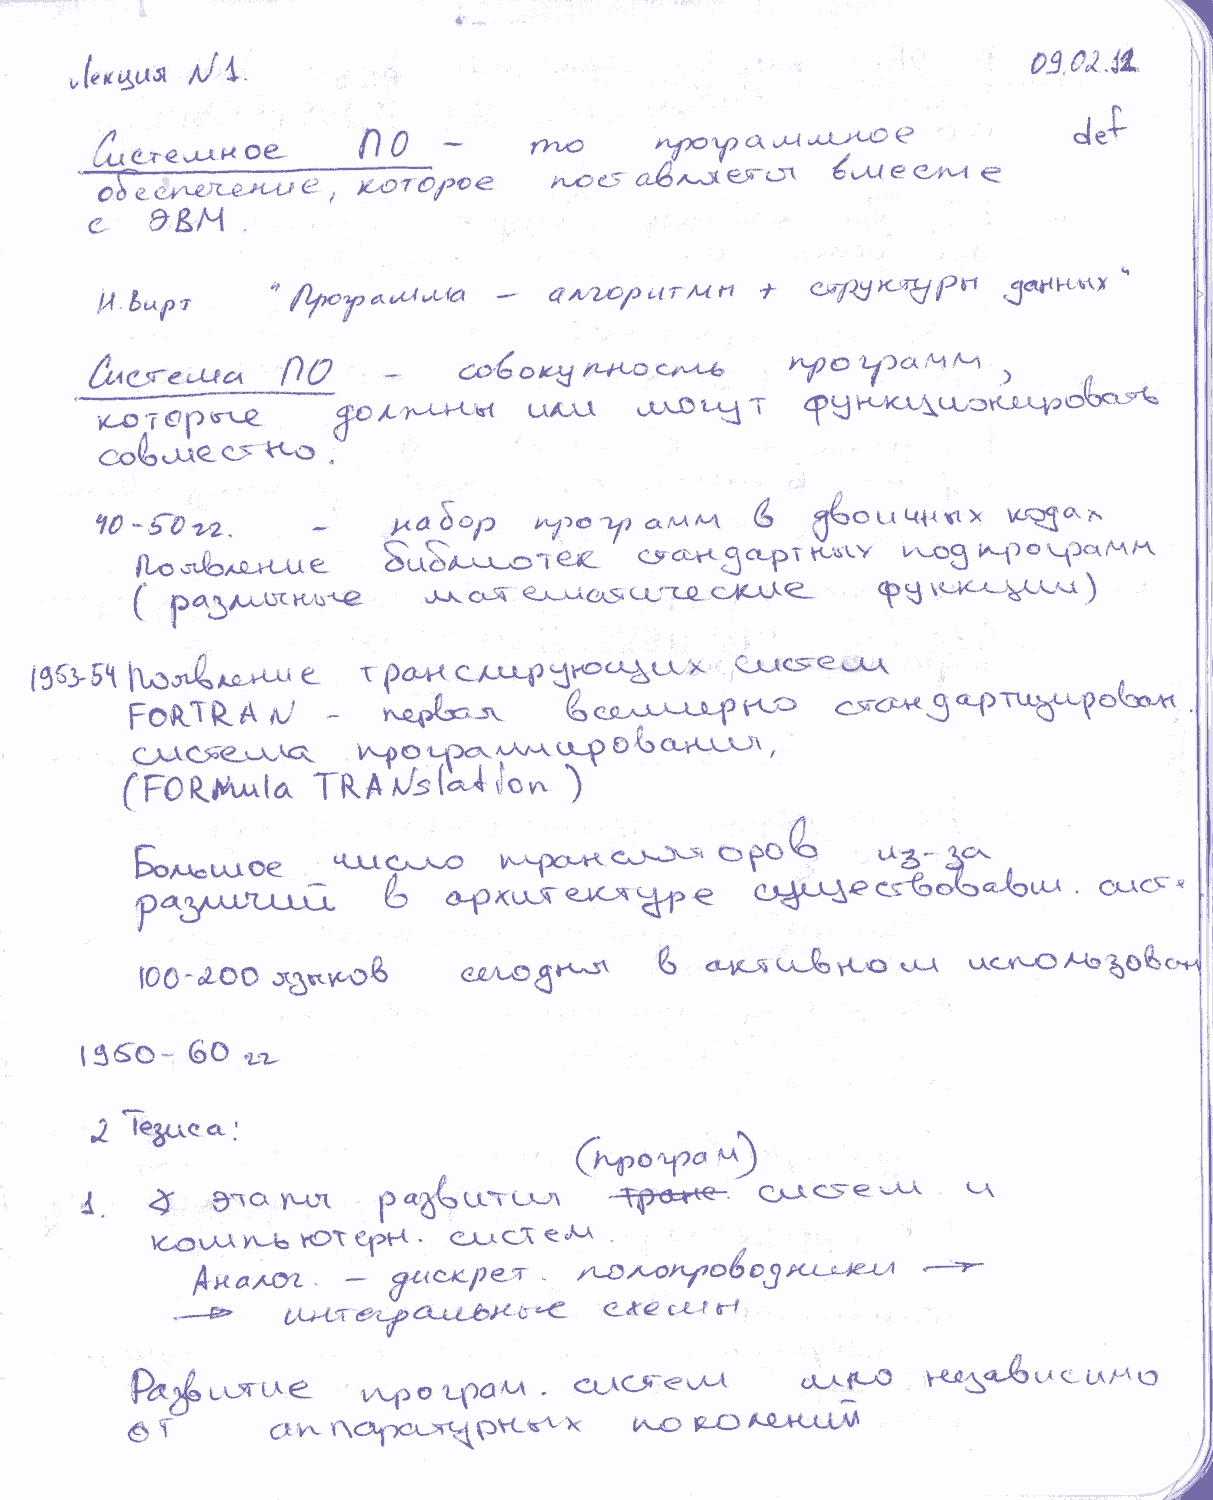 Лекция N1. 09.02.12
Системное ПО - то программное def
обеспечение, которое поставляется вместе
с ЭВМ.
Н.Вирт "Программа - алгоритмы + структуры данных"
Система ПО - совокупность программ,
которые должны или могут функционировать
совместно.
40-50 гг. - набор программ в двоичных кодах
Появление библиотек стандартных подпрограмм
(различные математические функции)
1953-54 Появление транслирующих систем
FORTRAN - первая всемирно стандартизирован.
система программирования,
(FORMula TRANslation)
Большое число трансляторов из-за
различий в архитектуре существовавш. сист.
100-200 языков сегодня в активном использован
1950-60 гг
2 Тезиса:
(програм)
1. этапы развития систем и
компьютерн. систем.
Аналог. - дискрет. полопроводники →
→ интегральные схемы
Развитие програм. систем шло независимо
от аппаратурных поколений